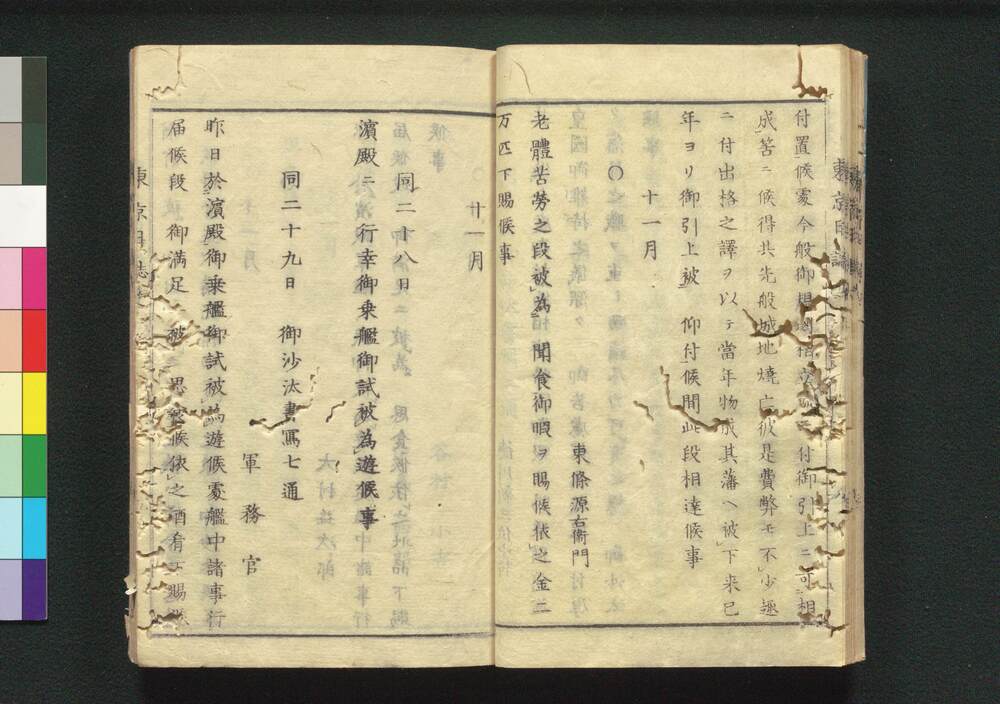 付置候處今般御
付御引上ニ可相
成筈ニ候得共先般城地燒亡彼是費弊モ不少趣
ニ付出格之譯ヲ以テ當年物成其藩ヘ被下来已
年ヨリ御引上被　仰付候間此段相達候事
十一月
○　東條源右衛門
老體苦勞之段被為　聞食御暇ヲ賜候依之金二
万匹下賜候事
十一月
同二十八日
濱殿ニ行幸御乗艦御試被為遊候事
同二十九日　御沙汰書寫七通
軍務官
昨日於濱殿御乗艦御試被為遊候處艦中諸事行
届候段御満足　被　思食候依之酒肴下賜候
東京日誌